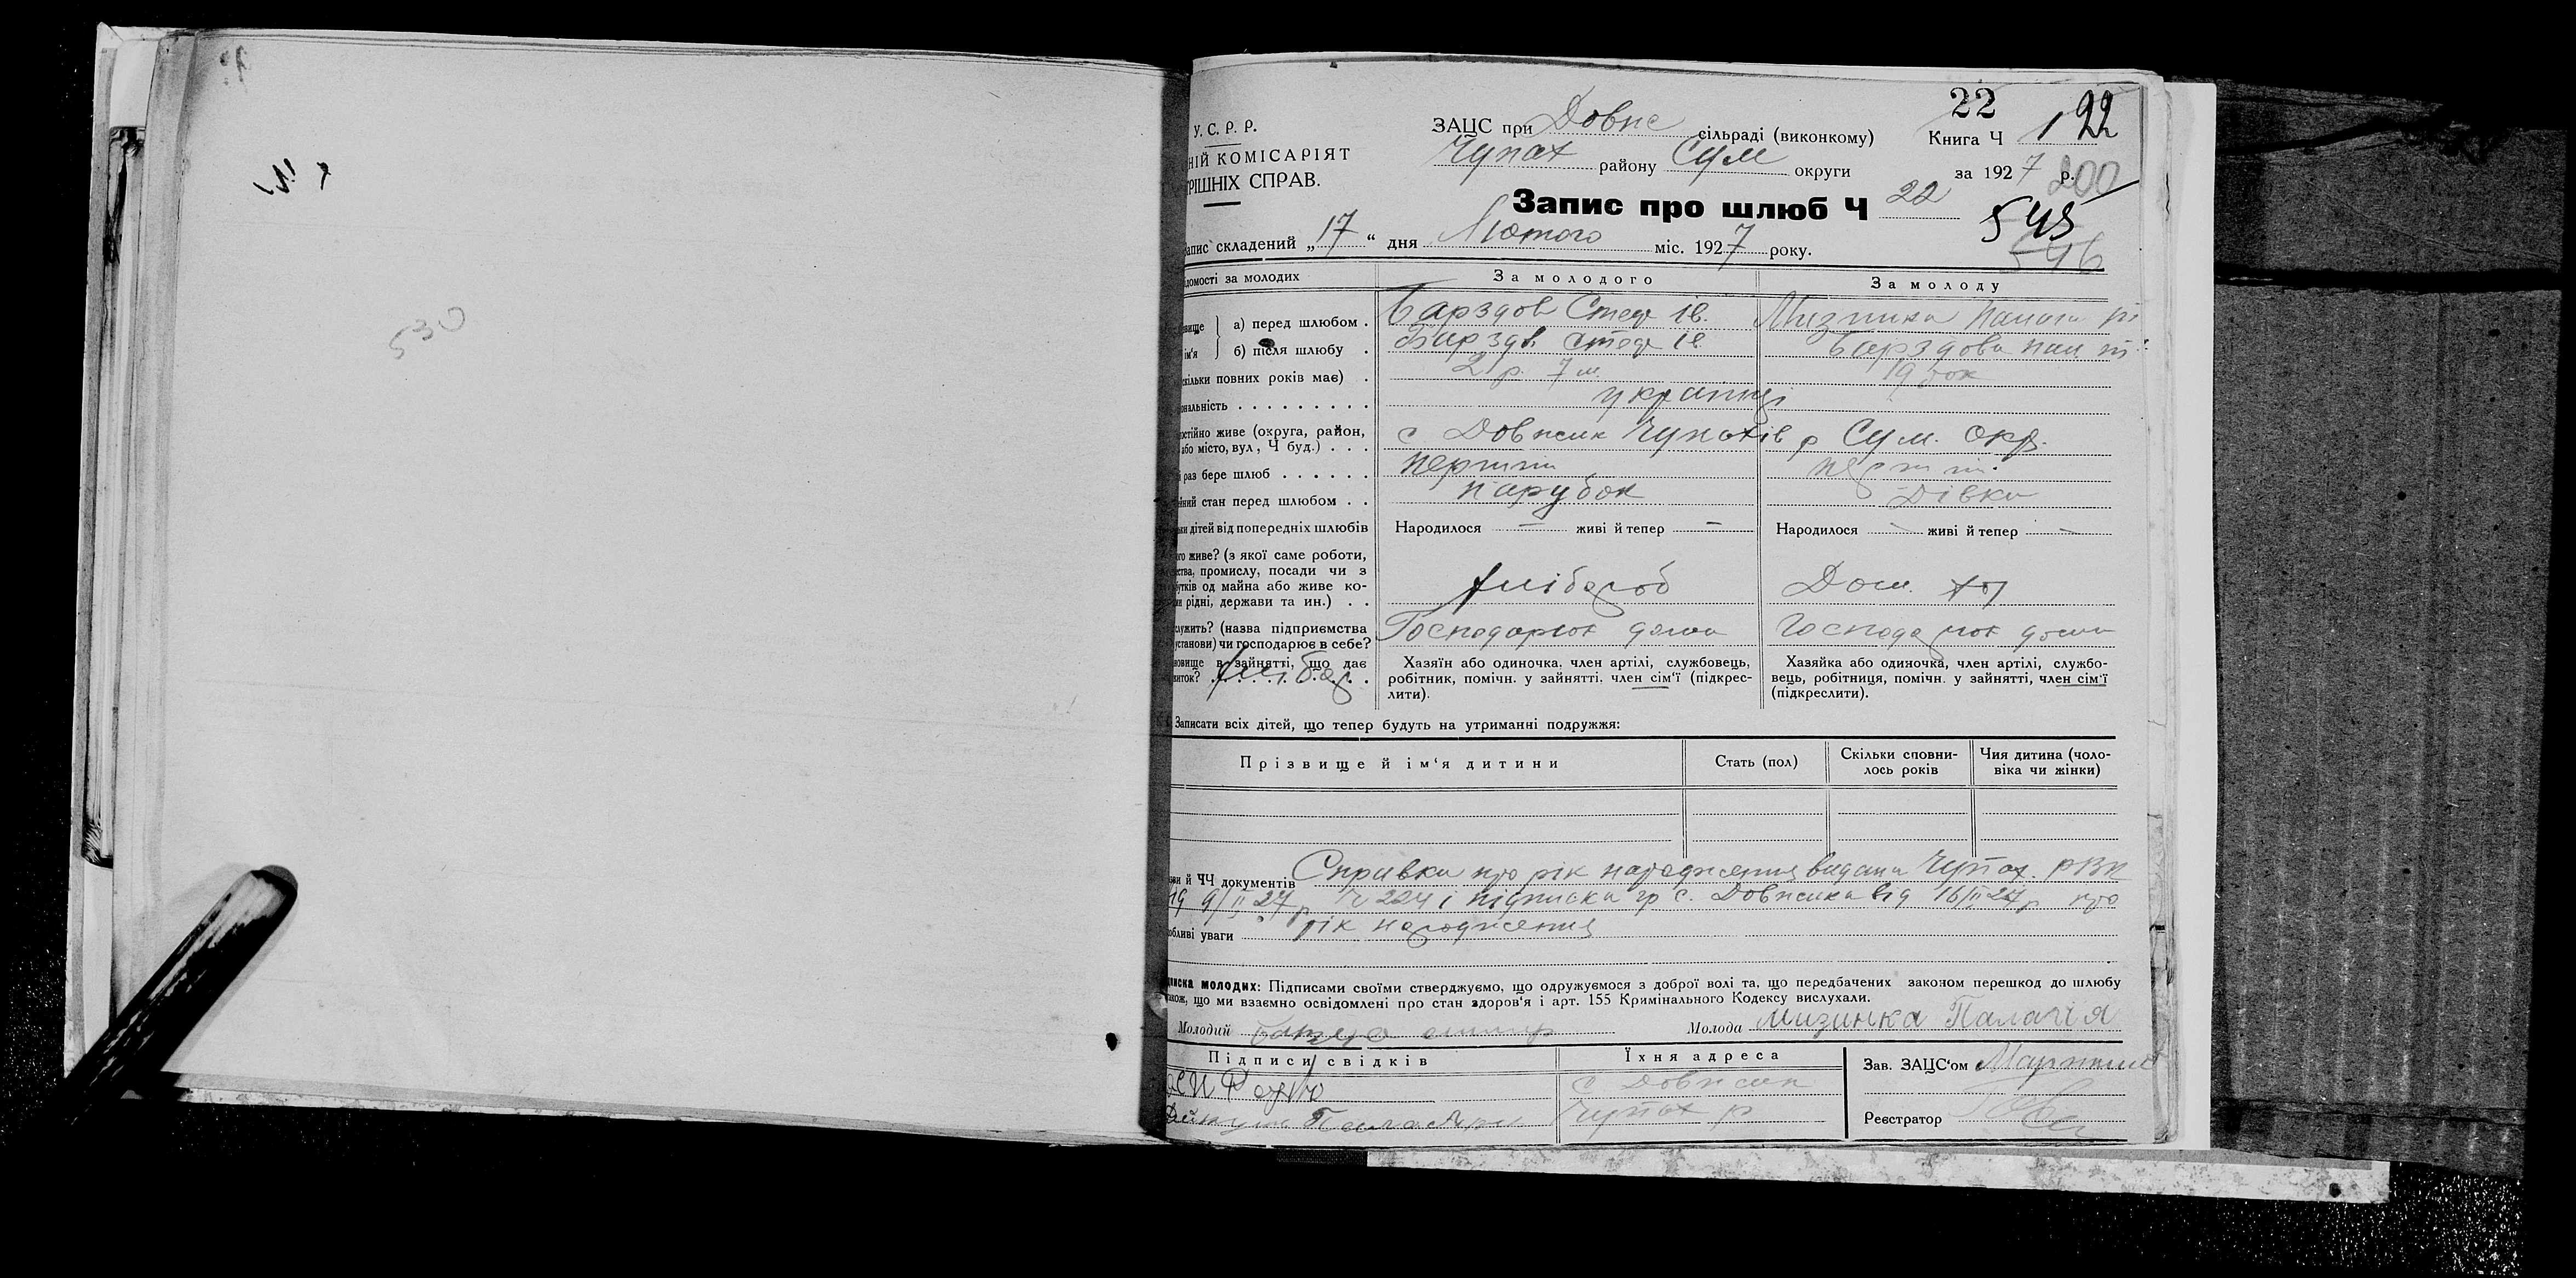 530
22
22
У. С. Р. Р.
ЗАЦС при Довж сільраді (виконкому)
Книга Ч 1
НІЙ КОМІСАРІЯТ
Чупах району Сум округи
за 1927 р.
200
РІШНІХ СПРАВ.
Запис про шлюб Ч 22
545
546
апис складений „17“ дня Лютого міс. 1927 року.
домості за молодих
За молодого
За молоду
вище
ім'я
а) перед шлюбом .
Барздов Стеф Ів.
Мизинка
б) після шлюбу .
Барздов Стеф Ів
Барздова
скільки повних років має) .
2 р. 7 м.
19 рок
ональність . . . . . . . . .
українці
остійно живе (округа, район,
або місто, вул , Ч буд.) . . .
с Довжик Чупахів р Сум. окр.
раз бере шлюб . . . . . .
перший
перший
йний стан перед шлюбом . .
парубок
Дівка
ьки дітей від попередніх шлюбів
Народилося — живі й тепер —
Народилося — живі й тепер —
ого живе? (з якої саме роботи,
ства, промислу, посади чи з
бутків од майна або живе ко-
рідні, держави та ин.) . .
хлібороб
Дом.
служить? (назва підприємства
установи) чи господарює в себе?
Господарює дома
Господарює дома
новище в зайнятті, що дає
иток? . . . . . . . . . .
хлібор
Хазяїн або одиночка, член артілі, службовець,
робітник, помічн. у зайнятті. член сім'ї (підкрес-
лити).
Хазяйка або одиночка, член артілі, службо-
вець, робітниця, помічн. у зайнятті, член сім'ї
(підкреслити).
Записати всіх дітей, що тепер будуть на утриманні подружжя:
Прізвище й ім'я дитини
Стать (пол)
Скільки сповни-
лось років
Чия дитина (чоло-
віка чи жінки)
й ЧЧ документів Справка про рік народження видана Чупах. РВК
9/II 27 р Ч 224 і підписка гр с. Довжика від 16/II 27 р про
обливі уваги рік народження
писка молодих: Підписами своїми стверджуємо, що одружуємося з доброї волі та, що передбачених законом перешкод до шлюбу
також, що ми взаємно освідомлені про стан здоров'я і арт. 155 Кримінального Кодексу вислухали.
Молодий
Молода Мизинка Палагія
Підписи свідків
Їхня адреса
Зав. ЗАЦС'ом
с Довжик
Чупах р
Реєстратор